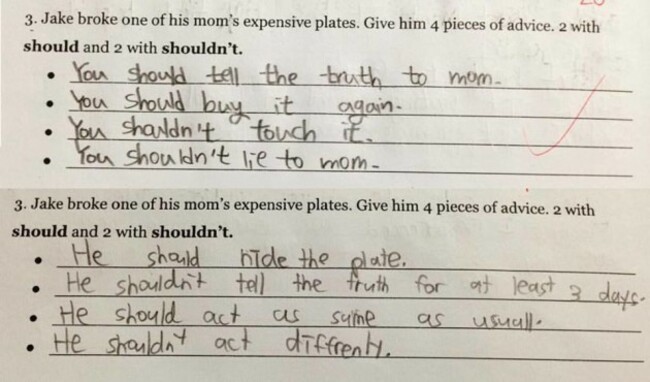 3. Jake broke one of his mom's expensive plates. Give him 4 pieces of advice. 2 with
should and 2 with shouldn't.
• You should tell the truth to mom.
• You should buy it again.
• You shouldn't touch it.
• You shouldn't lie to mom.
3. Jake broke one of his mom's expensive plates. Give him 4 pieces of advice. 2 with
should and 2 with shouldn't.
• He should hide the plate.
• He shouldn't tell the truth for at least 3 days.
• He should act as same as usuall.
• He shouldn't act diffrently.